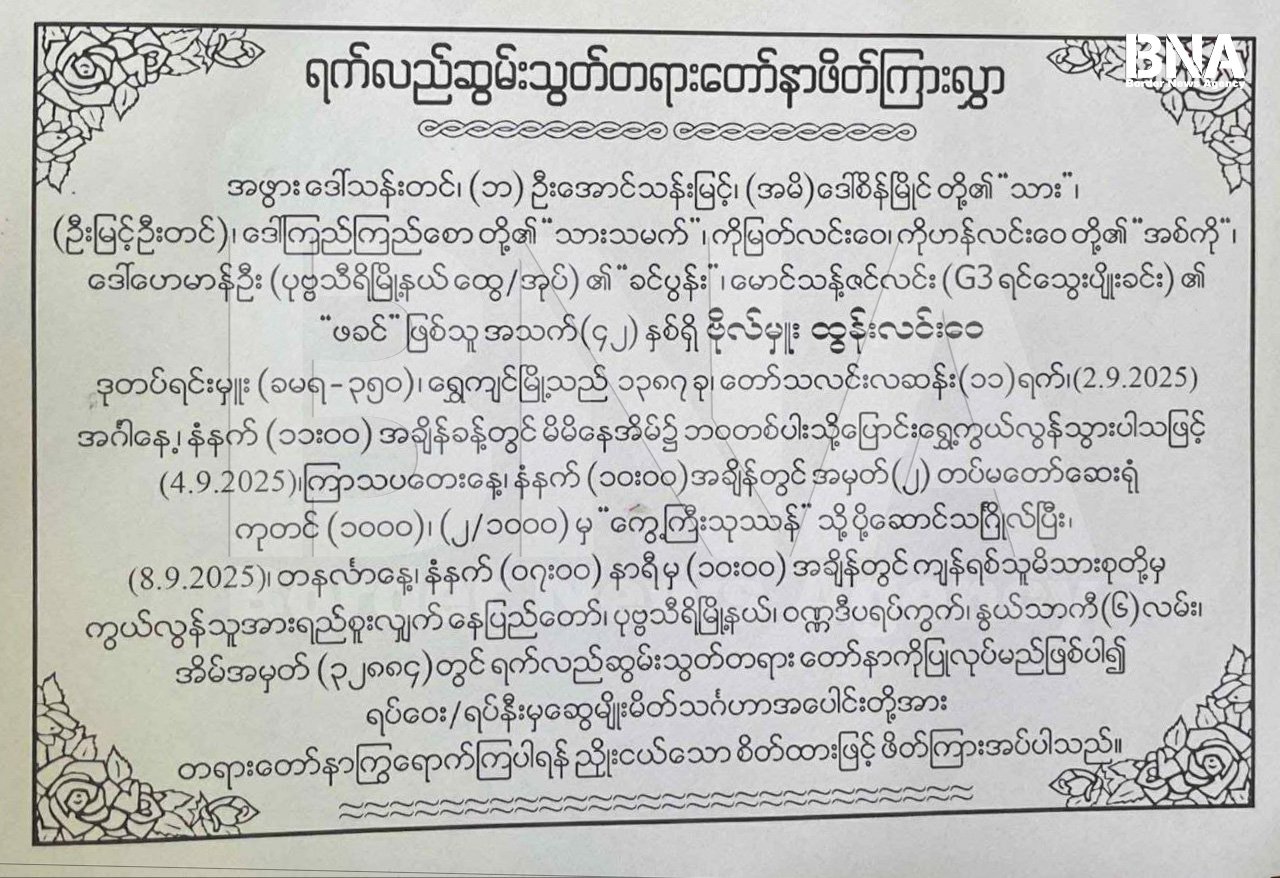 BNA
Border News Agency
ရက်လည်ဆွမ်းသွတ်တရားတော်နာဖိတ်ကြားလွှာ
အဖွား ဒေါ်သန်းတင်၊ (ဘ) ဦးအောင်သန်းမြင့်၊ (အမိ) ဒေါ်စိန်မြိုင် တို့၏ "သား"၊
(ဦးမြင့်ဦးတင်)၊ ဒေါ်ကြည်ကြည်စော တို့၏ "သားသမက်"၊ ကိုမြတ်လင်းဝေ၊ ကိုဟန်လင်းဝေ တို့၏ "အစ်ကို"၊
ဒေါ်ဟေမာန်ဦး (ပုဗ္ဗသီရိမြို့နယ် ထွေ/အုပ်) ၏ "ခင်ပွန်း"၊ မောင်သန့်ဇင်လင်း (G3 ရင်သွေးပျိုးခင်း) ၏
"ဖခင်" ဖြစ်သူ အသက် (၄၂) နှစ်ရှိ ဗိုလ်မှူး ထွန်းလင်းဝေ
ဒုတပ်ရင်းမှူး (ခမရ - ၃၅၀)၊ ရွှေကျင်မြို့သည် ၁၃၈၇ ခု၊ တော်သလင်းလဆန်း (၁၁) ရက်၊ (2.9.2025)
အင်္ဂါနေ့၊ နံနက် (၁၁း၀၀) အချိန်ခန့်တွင် မိမိနေအိမ်၌ ဘဝတစ်ပါးသို့ပြောင်းရွှေ့ကွယ်လွန်သွားပါသဖြင့်
(4.9.2025)၊ ကြာသပတေးနေ့၊ နံနက် (၁၀း၀၀) အချိန်တွင် အမှတ် (၂) တပ်မတော်ဆေးရုံ
ကုတင် (၁၀၀၀)၊ (၂/၁၀၀၀) မှ "ကွေ့ကြီးသုဿန်" သို့ ပို့ဆောင်သင်္ဂြိုလ်ပြီး၊
(8.9.2025)၊ တနင်္လာနေ့၊ နံနက် (၀၇း၀၀) နာရီ မှ (၁၀း၀၀) အချိန်တွင် ကျန်ရစ်သူမိသားစုတို့မှ
ကွယ်လွန်သူအားရည်စူးလျှက် နေပြည်တော်၊ ပုဗ္ဗသီရိမြို့နယ်၊ ဝဏ္ဏဒီပရပ်ကွက်၊ နွယ်သာကီ (၆) လမ်း၊
အိမ်အမှတ် (၃၂၈၈၄) တွင် ရက်လည်ဆွမ်းသွတ်တရား တော်နာကိုပြုလုပ်မည်ဖြစ်ပါ၍
ရပ်ဝေး/ရပ်နီးမှဆွေမျိုးမိတ်သင်္ဂဟာအပေါင်းတို့အား
တရားတော်နာကြွရောက်ကြပါရန် ညှိုးငယ်သော စိတ်ထားဖြင့် ဖိတ်ကြားအပ်ပါသည်။